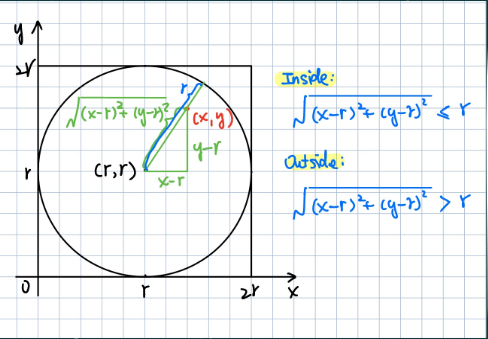 y
2r
r
√(x-r)²+(y-r)²
(x,y)
(r,r)
y-r
r
x-r
0
r
2r
x
Inside:
√(x-r)²+(y-r)² ≤ r
Outside:
√(x-r)²+(y-r)² > r